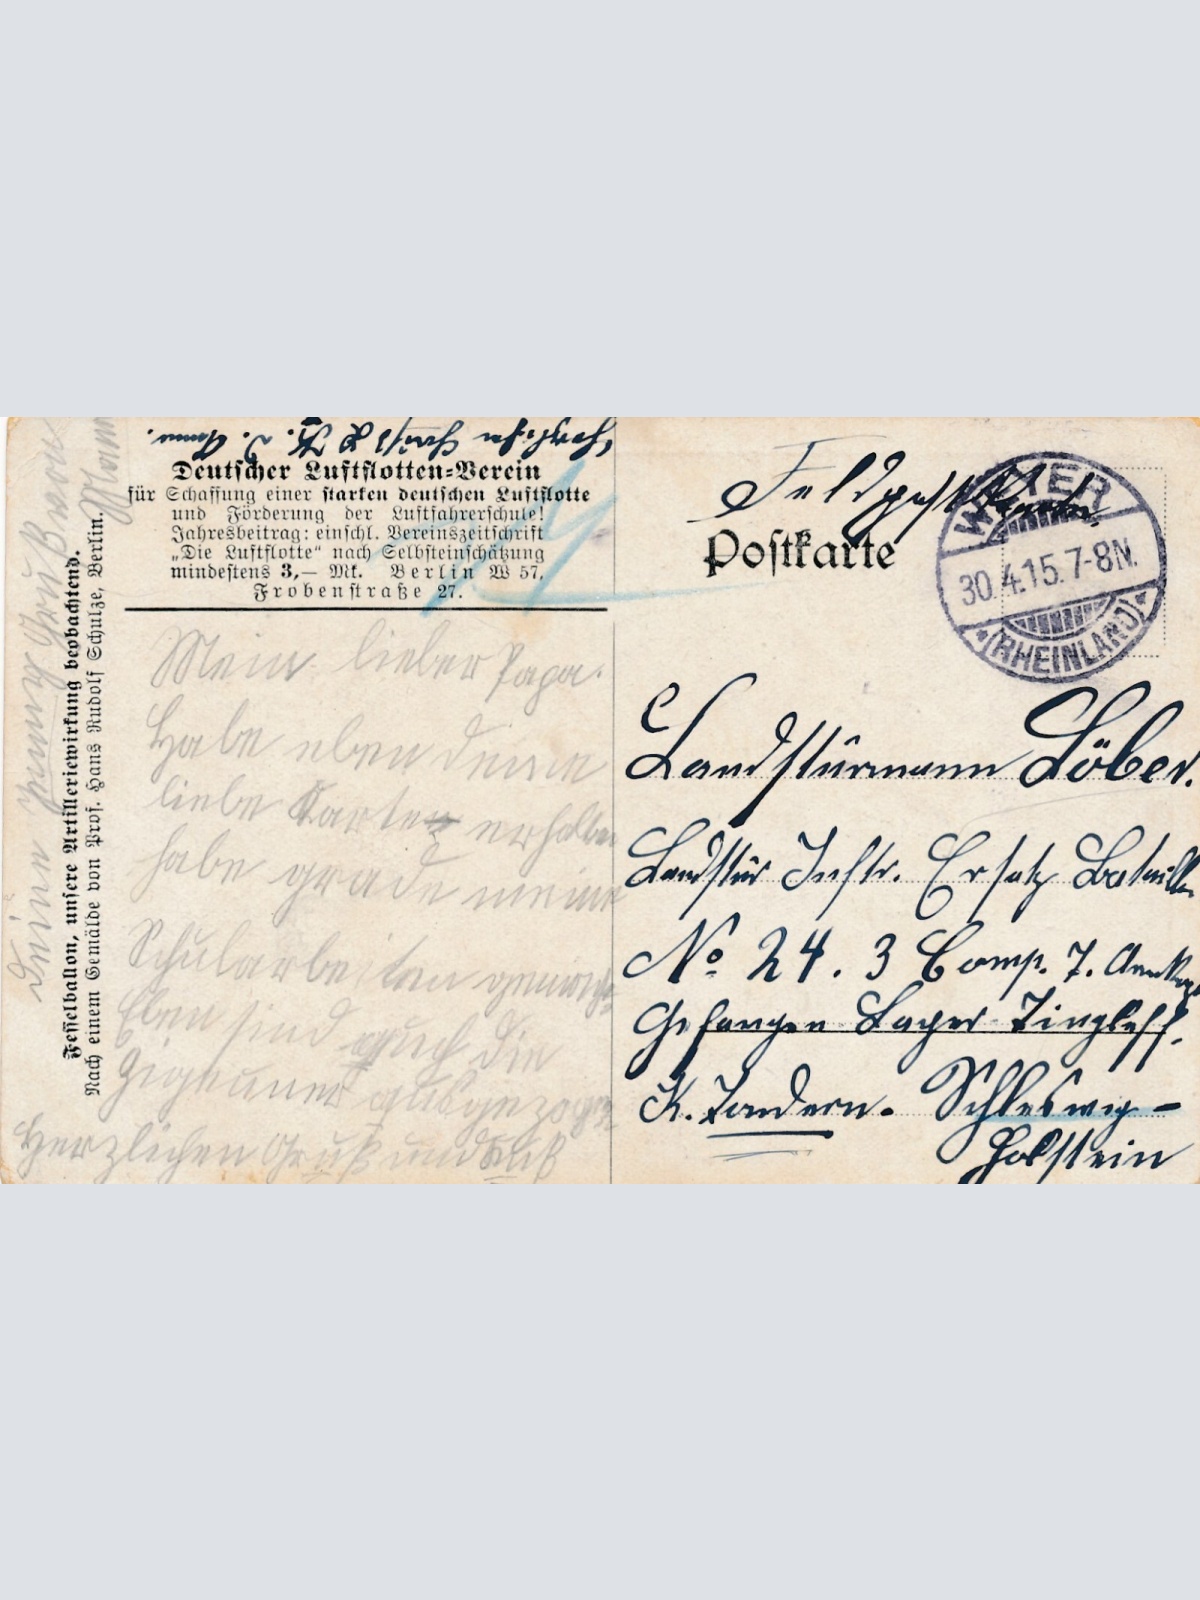 Herzlichen Gruß
Deutscher Luftflotten-Verein
für Schaffung einer starken deutschen Luftflotte
und Förderung der Luftfahrerschule!
Jahresbeitrag: einschl. Vereinszeitschrift
„Die Luftflotte“ nach Selbsteinschätzung
mindestens 3,— Mk. Berlin W 57,
Frobenstraße 27.
Mein lieber Papa.
Habe eben deine
liebe Karte erhalten
habe grade meine
Schularbeiten gemacht
Eben sind auch die
Zigeuner ausgezogen
Herzlichen Gruß und Kuß
dein
Fesselballon, unsere Artilleriewirkung beobachtend.
Nach einem Gemälde von Prof. Hans Rudolf Schulze, Berlin.
Feldpostkarte
Postkarte
30.4.15.7-8N.
(RHEINLAND)
Landstürmann Löber.
Landstür Inftr. Ersatz Bataillon
No 24. 3 Comp. 7.
Gefangen Lager Tingleff.
K. Tondern. Schleswig-
Holstein